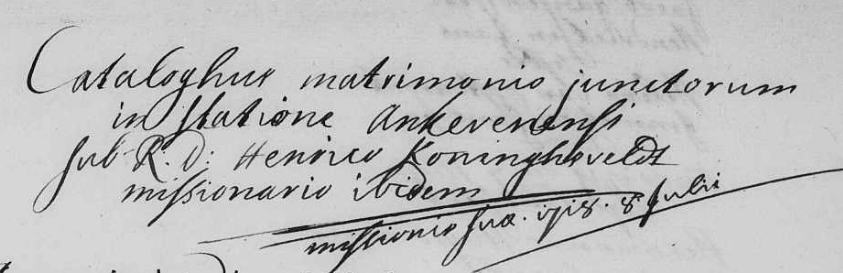 Cataloghus matrimonio junctorum
in statione Ankevenensi
sub R: D: Henrico Koninghsveldt
missionario ibidem
missionis suæ. 1718. 8. Julii